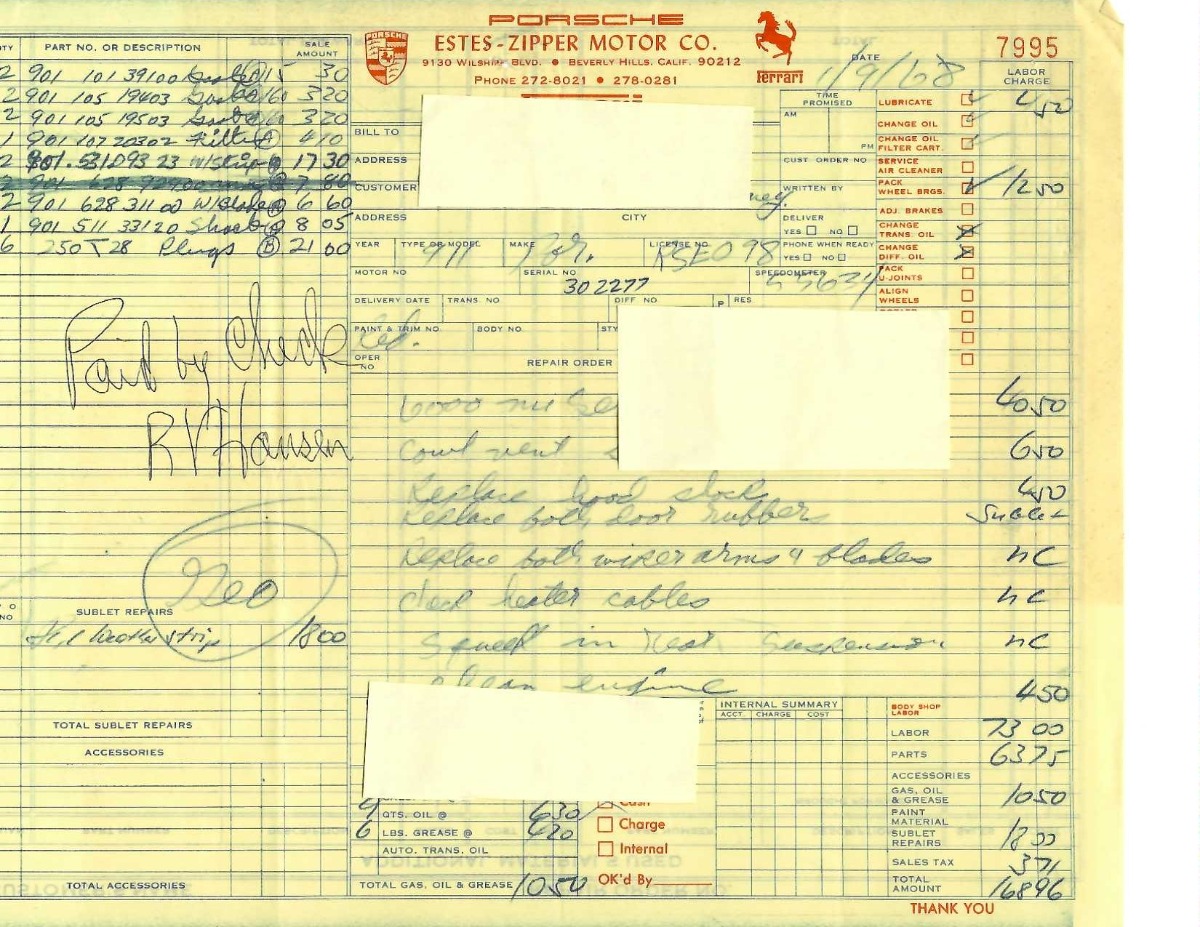 PORSCHE
ESTES-ZIPPER MOTOR CO.
9130 WILSHIRE BLVD. • BEVERLY HILLS, CALIF. 90212
PHONE 272-8021 • 278-0281
PORSCHE
Ferrari
7995
DATE 1/9/68
LABOR CHARGE
TY PART NO. OR DESCRIPTION SALE AMOUNT
2 901 101 39100 @ 15 30
2 901 105 19403 @ 160 3 20
2 901 105 19503 @ 160 3 20
1 901 107 20302 Filter @ 4 10
2 901.531.093 23 W/Strip @ 17 30
2 901 628
2 901 628 311 00 W/Blade @ 6 60
1 901 511 331 20 Shock @ 8 05
6 250 T28 Plugs B 21 60
Paid by Check
R V Hansen
Geo
O NO SUBLET REPAIRS
weather strip 18 00
TOTAL SUBLET REPAIRS
ACCESSORIES
TOTAL ACCESSORIES
BILL TO
ADDRESS
CUSTOMER
ADDRESS CITY
TIME PROMISED
AM
PM
CUST. ORDER NO
WRITTEN BY
DELIVER
YES NO
PHONE WHEN READY
YES NO
YEAR TYPE OR MODEL 911 MAKE LICENSE NO RSE098
MOTOR NO SERIAL NO 302277 SPEEDOMETER
DELIVERY DATE TRANS. NO DIFF NO P RES
PAINT & TRIM NO. Red. BODY NO. STY
OPER NO REPAIR ORDER
LUBRICATE 4 50
CHANGE OIL
CHANGE OIL FILTER CART.
SERVICE AIR CLEANER
PACK WHEEL BRGS. 12 50
ADJ. BRAKES
CHANGE TRANS. OIL
CHANGE DIFF. OIL
PACK U-JOINTS
ALIGN WHEELS
6000 mi Se 40 50
Cowl vent 6 50
Replace hood shock 4 50
Replace both door rubbers Sublet
Replace both wiper arms & blades NC
heater cables NC
in rear suspension NC
clean engine 4 50
INTERNAL SUMMARY
ACCT. CHARGE COST
9 QTS. OIL @ 6 30
6 LBS. GREASE @ 4 20
AUTO. TRANS. OIL
TOTAL GAS, OIL & GREASE 10 50
Cash
Charge
Internal
OK'd By
BODY SHOP LABOR
LABOR 73 00
PARTS 63 75
ACCESSORIES
GAS, OIL & GREASE 10 50
PAINT MATERIAL
SUBLET REPAIRS 18 00
SALES TAX 3 71
TOTAL AMOUNT 168 96
THANK YOU